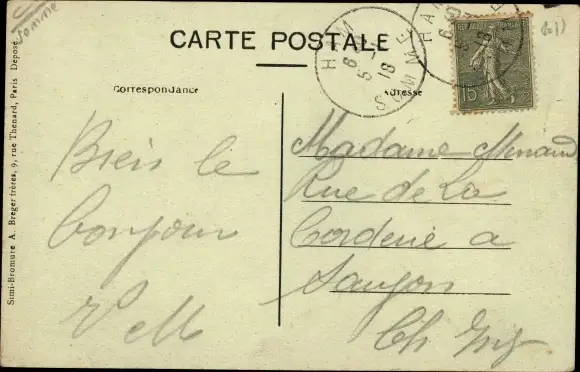 Somme
CARTE POSTALE
HAM
SOMME
6
5
18
15
Correspondance
Adresse
Simi-Bromure A. Breger frères, 9, rue Thenard, Paris Déposé
Bien le
bonjour
Madame
Rue de La
Corderie a
Saujon
Ch